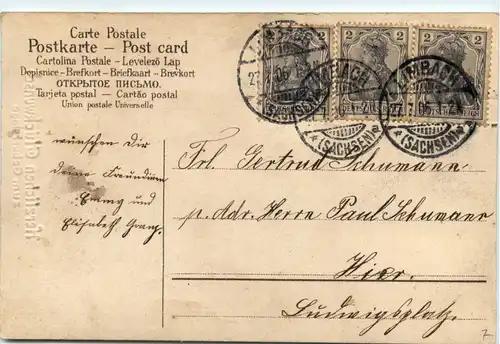 Carte Postale
Postkarte – Post card
Cartolina Postale – Levelező Lap
Dopisnice – Brefkort – Briefkaart – Brevkort
ОТКРЫТОЕ ПИСЬМО.
Tarjeta postal – Cartão postal
Union postale Universelle
2 2 2
LIMBACH
(SACHSEN)
LIMBACH
(SACHSEN)
LIMBACH
27.7.06.
(SACHSEN)
Herzlichen Glückwunsch
wünschen dir
deine Freundinnen
Emmy und
Elisabeth
Frl. Gertrud Schumann
p. Adr. Herrn Paul Schumann
Hier.
Ludwigsplatz.
7